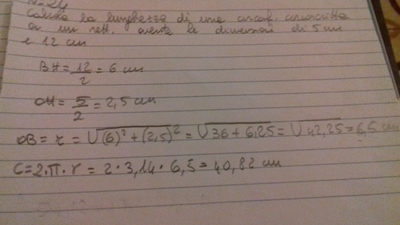 N=24
Calcola la lunghezza di una circonf. circoscritta
a un rett. avente le dimensioni di 5 cm
e 12 cm
BH = 12/2 = 6 cm
OH = 5/2 = 2,5 cm
OB = r = √(6)² + (2,5)² = √36 + 6,25 = √42,25 = 6,5 cm
C = 2·π·r = 2·3,14·6,5 = 40,82 cm